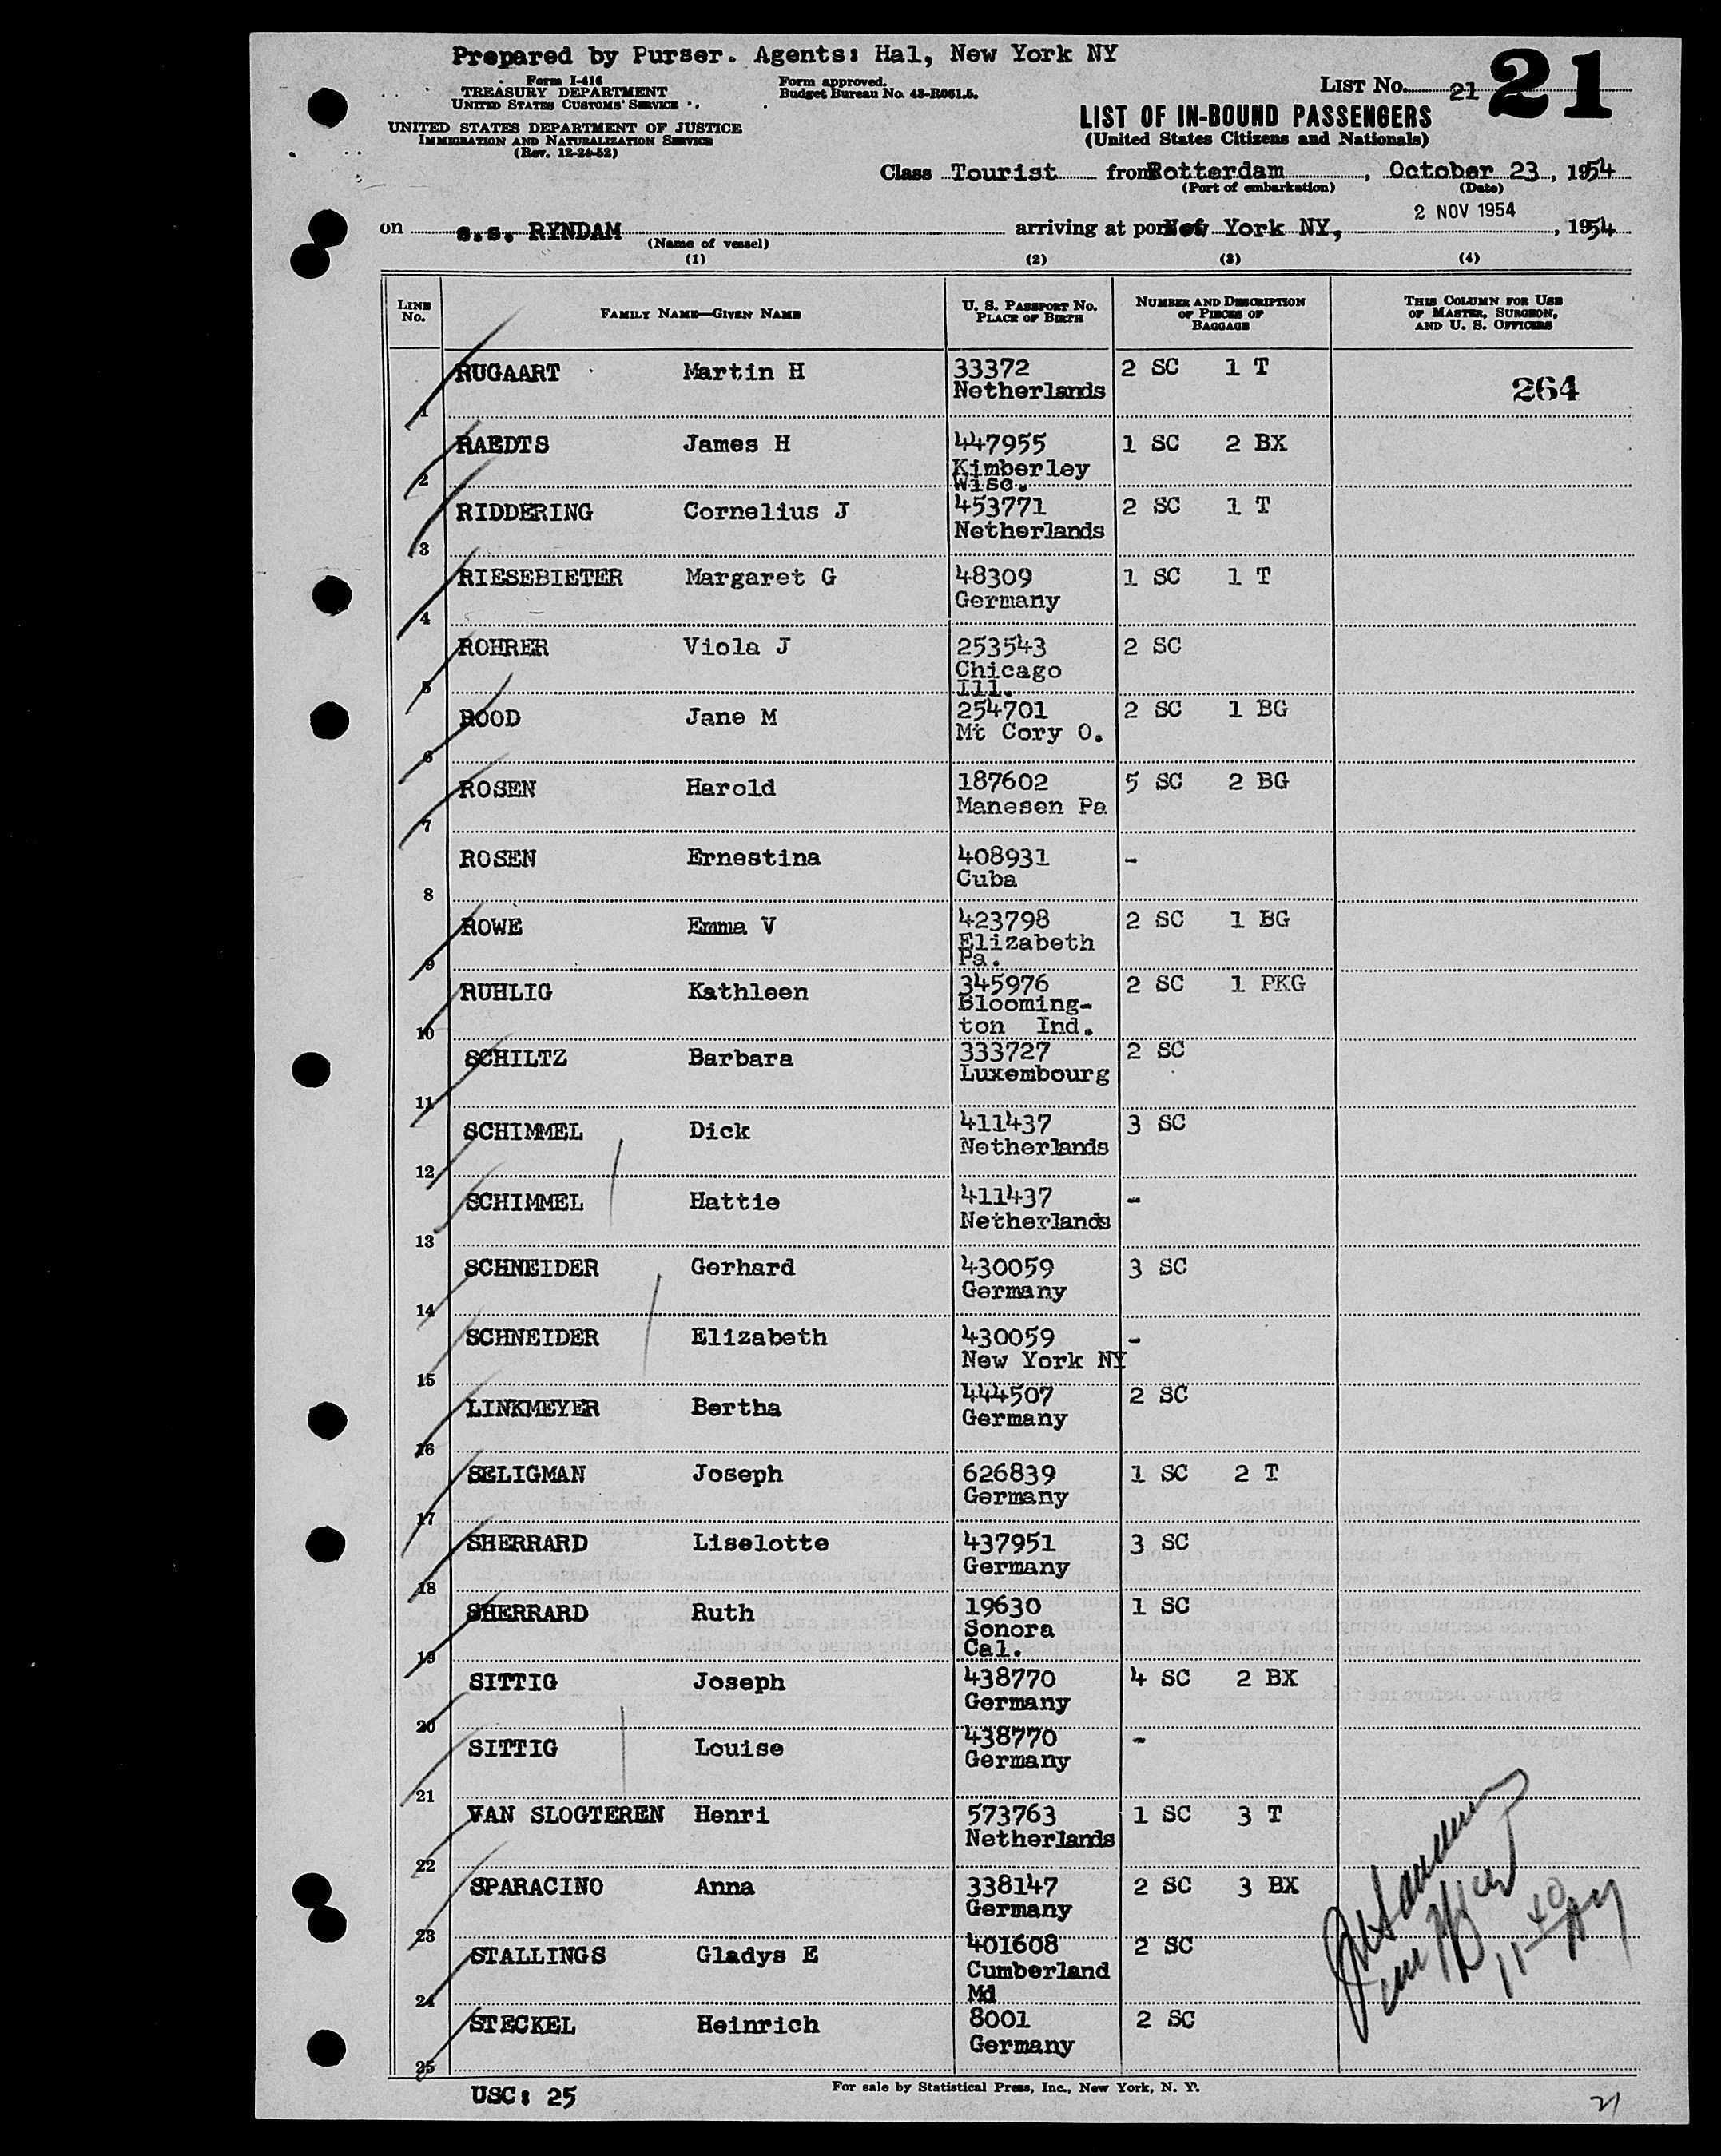 Prepared by Purser. Agents: Hal, New York NY
Form I-416
TREASURY DEPARTMENT
UNITED STATES CUSTOMS' SERVICE
Form approved.
Budget Bureau No. 43-R061.5.
LIST No. 21 21
UNITED STATES DEPARTMENT OF JUSTICE
IMMIGRATION AND NATURALIZATION SERVICE
(Rev. 12-24-52)
LIST OF IN-BOUND PASSENGERS
(United States Citizens and Nationals)
Class Tourist from Rotterdam, October 23, 1954
(Port of embarkation) (Date)
2 NOV 1954
on s.s. RYNDAM arriving at port of New York NY, , 1954
(Name of vessel)
(1) (2) (3) (4)
LINE No. FAMILY NAME—GIVEN NAME U. S. PASSPORT No. PLACE OF BIRTH NUMBER AND DESCRIPTION OF PIECES OF BAGGAGE THIS COLUMN FOR USE OF MASTER, SURGEON, AND U. S. OFFICERS
1 RUGAART Martin H 33372 Netherlands 2 SC 1 T 264
2 RAEDTS James H 447955 Kimberley Wisc. 1 SC 2 BX
3 RIDDERING Cornelius J 453771 Netherlands 2 SC 1 T
4 RIESEBIETER Margaret G 48309 Germany 1 SC 1 T
5 ROHRER Viola J 253543 Chicago Ill. 2 SC
6 ROOD Jane M 254701 Mt Cory O. 2 SC 1 BG
7 ROSEN Harold 187602 Manesen Pa 5 SC 2 BG
8 ROSEN Ernestina 408931 Cuba -
9 ROWE Emma V 423798 Elizabeth Pa. 2 SC 1 BG
10 RUHLIG Kathleen 345976 Blooming- ton Ind. 2 SC 1 PKG
11 SCHILTZ Barbara 333727 Luxembourg 2 SC
12 SCHIMMEL Dick 411437 Netherlands 3 SC
13 SCHIMMEL Hattie 411437 Netherlands -
14 SCHNEIDER Gerhard 430059 Germany 3 SC
15 SCHNEIDER Elizabeth 430059 New York NY -
16 LINKMEYER Bertha 444507 Germany 2 SC
17 SELIGMAN Joseph 626839 Germany 1 SC 2 T
18 SHERRARD Liselotte 437951 Germany 3 SC
19 SHERRARD Ruth 19630 Sonora Cal. 1 SC
20 SITTIG Joseph 438770 Germany 4 SC 2 BX
21 SITTIG Louise 438770 Germany -
22 VAN SLOGTEREN Henri 573763 Netherlands 1 SC 3 T
23 SPARACINO Anna 338147 Germany 2 SC 3 BX
24 STALLINGS Gladys E 401608 Cumberland Md 2 SC
25 STECKEL Heinrich 8001 Germany 2 SC
USC: 25
For sale by Statistical Press, Inc., New York, N. Y.
21